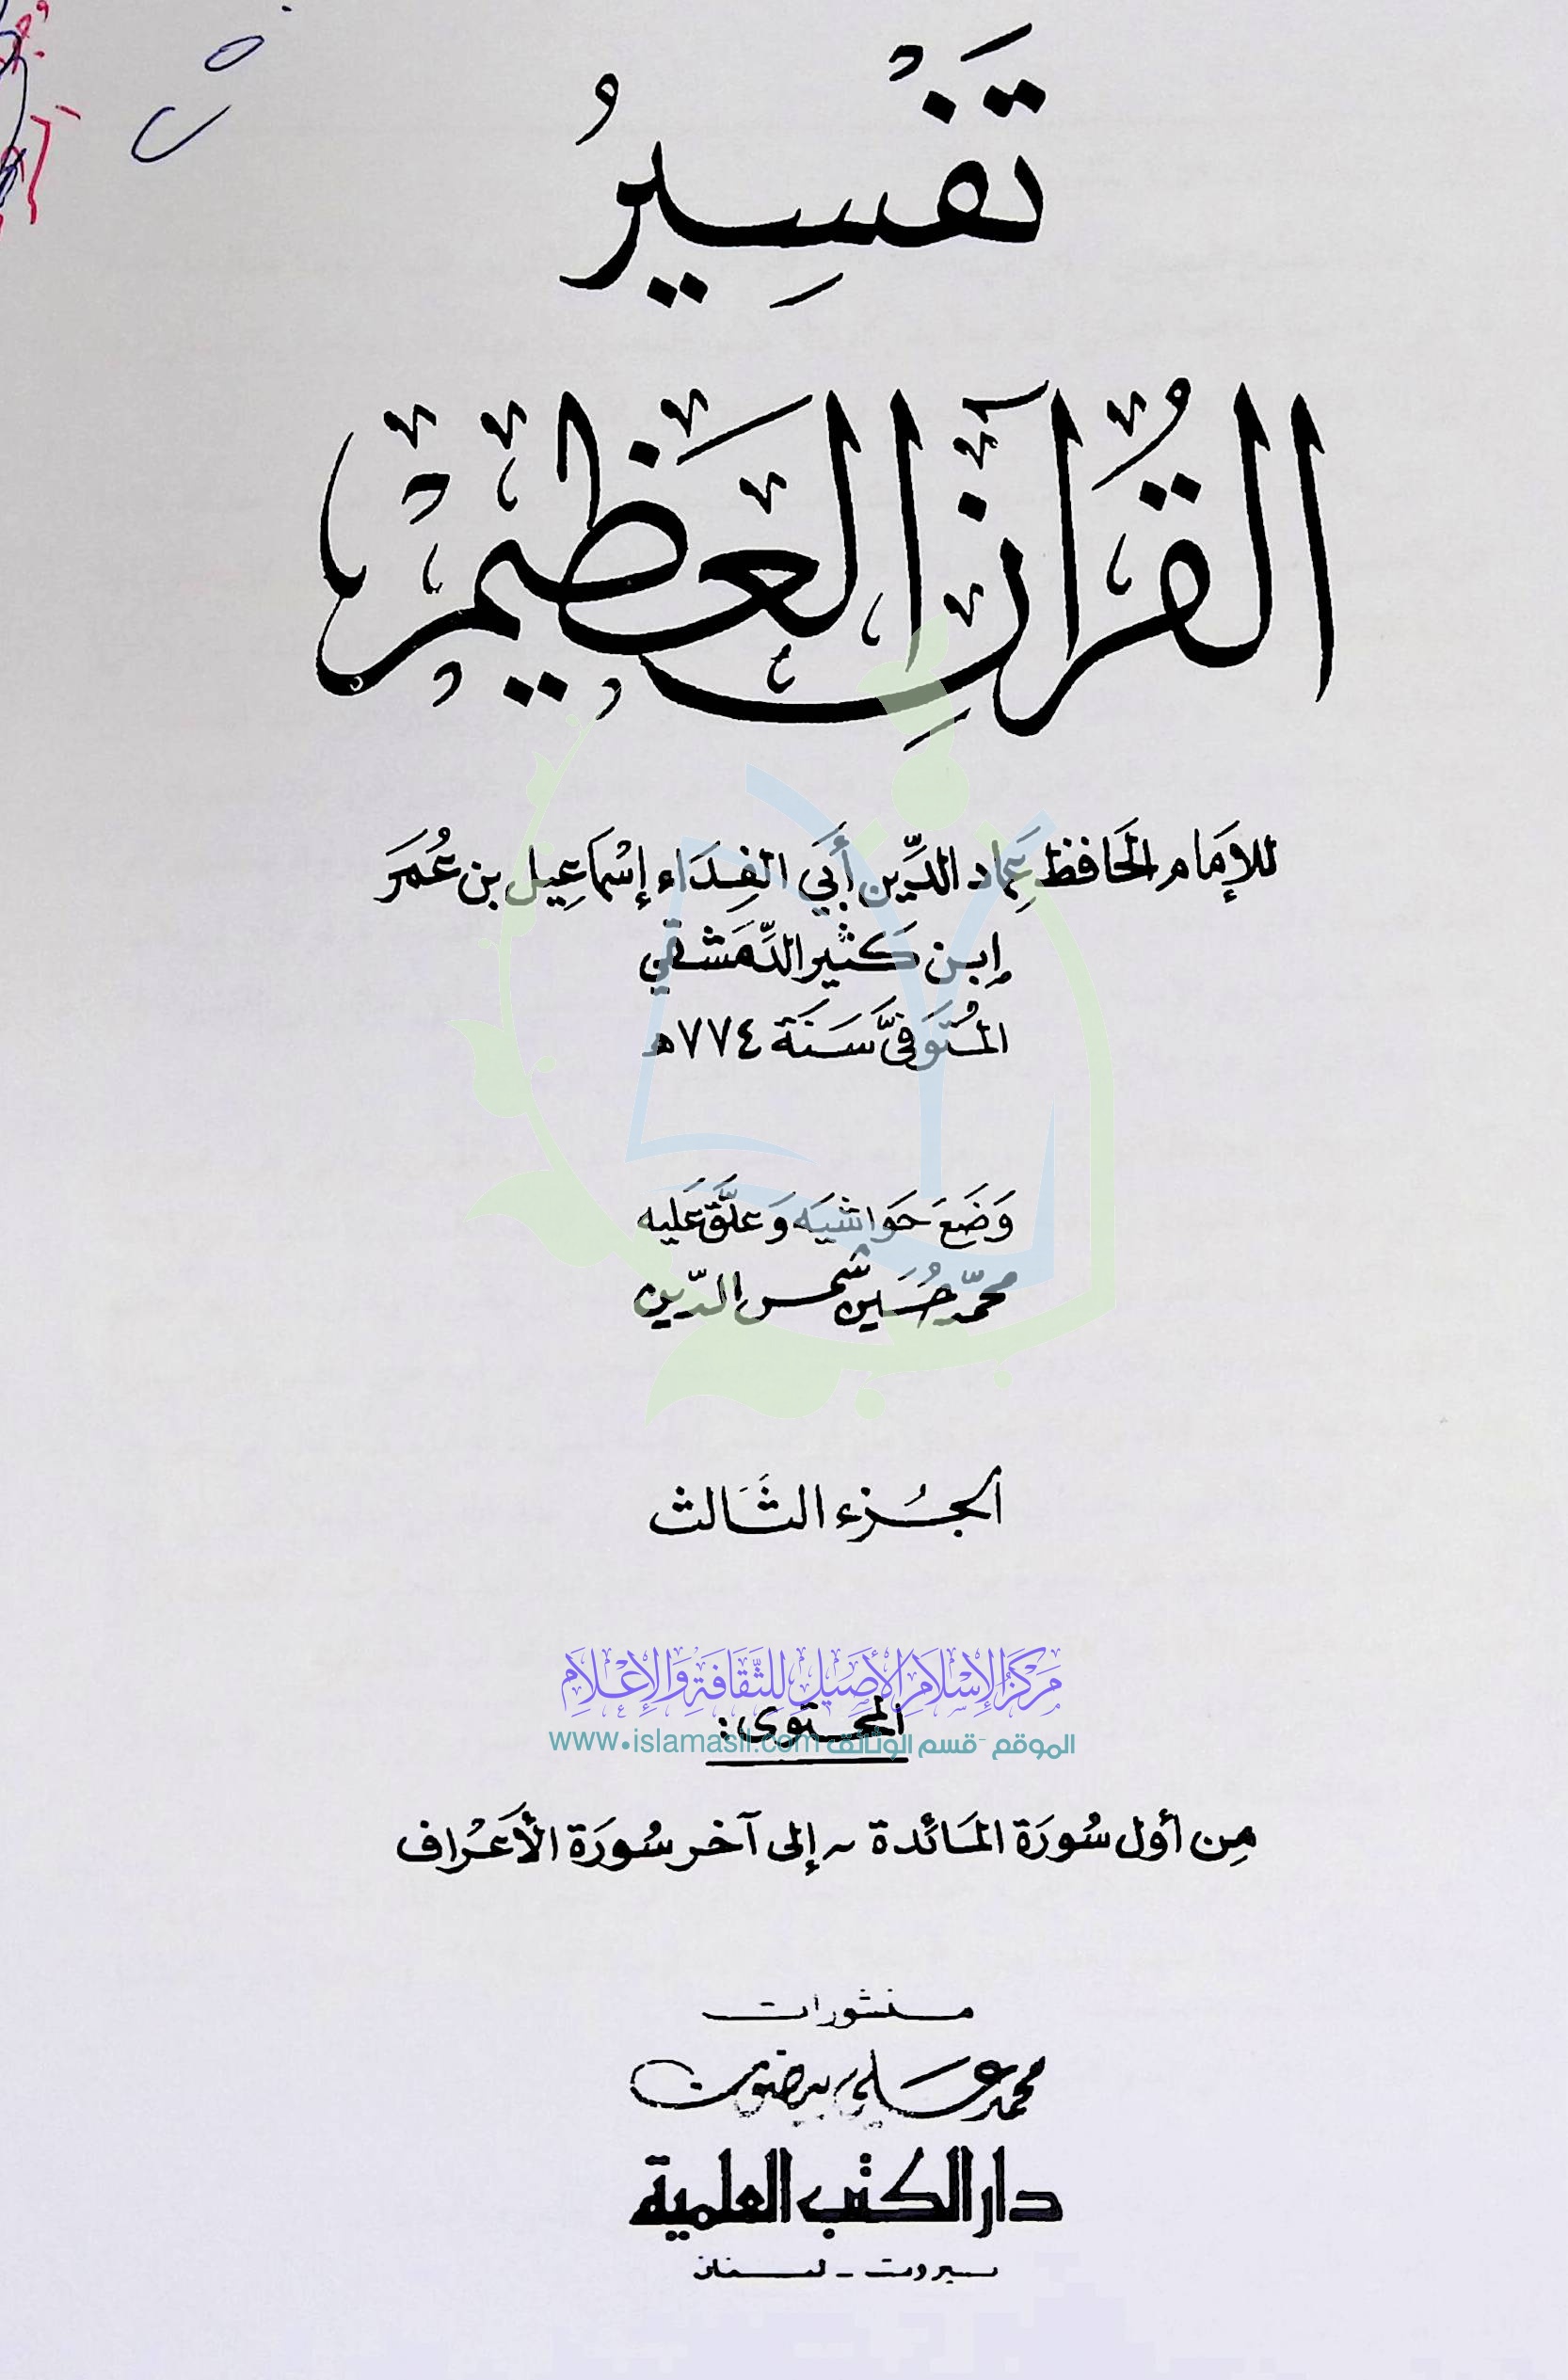 تَفْسِيرُ
القُرْآنِ العَظِيمِ
للإمَام الحَافظ عِمَاد الدِّين أَبي الفِدَاء إسْمَاعِيل بن عُمَر
إبن كَثير الدِّمَشقي
المُتَوَفَّى سَنَة ٧٧٤ هـ
وَضَعَ حَوَاشيَه وَعلَّق عَليه
محمّد حُسَين شمس الدّين
الجُزء الثَالث
مَرْكَزُ الإِسْلَامِ الأَصِيلِ لِلثَّقَافَةِ وَالإِعْلَامِ
المحتوى:
الموقع - قسم الوثائق www.islamasil.com
مِن أول سُورَة المَائدة ~ إلى آخر سُورَة الأَعْرَاف
منشورات
محمد علي بيضون
دار الكتب العلمية
بيروت - لبنان